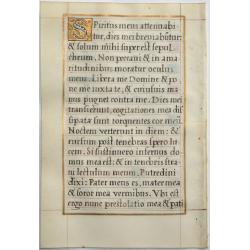 Spiritus meus attenuabi
tur, dies mei breviabũtur:
& solum mihi superest sepul
chrum. Non peccavi & in ama
ritudinibus moratur oculus
meus. Libera me Domine & po
ne me juxta te, & cuiusuis ma
nus pugnet contra me. Dies mei
transierunt, cogitationes meæ dis
sipatæ sunt torquentes cor meũ.
Noctem verterunt in diem: &
rursum post tenebras spero lu
cem. Si sustinuero infernus do
mus mea est: & in tenebris stra
ui lectulum meum. Putredini
dixi: Pater meus es, mater mea
& soror mea vermibus. Vbi est
ergo nunc prestolatio mea & pati